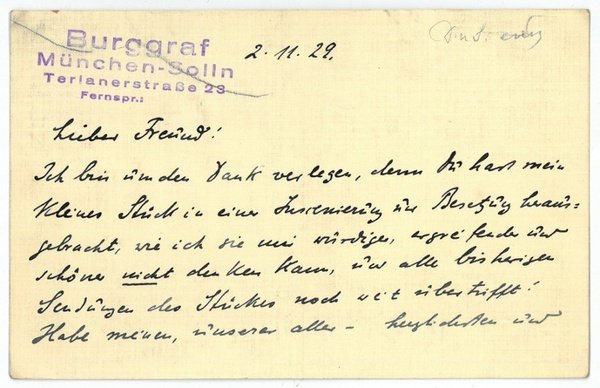 Burggraf
München-Solln
Terlanerstraße 23
Fernspr.:
2.11.29.
Lieber Freund!
Ich bin um den Dank verlegen, denn Du hast mein
kleines Stück in einer Inszenierung und Besetzung heraus-
gebracht, wie ich sie mir würdiger, ergreifender und
schöner nicht denken kann, und alle bisherigen
Sendungen des Stückes noch weit übertrifft!
Habe meinen, unserer aller – herzlichsten und